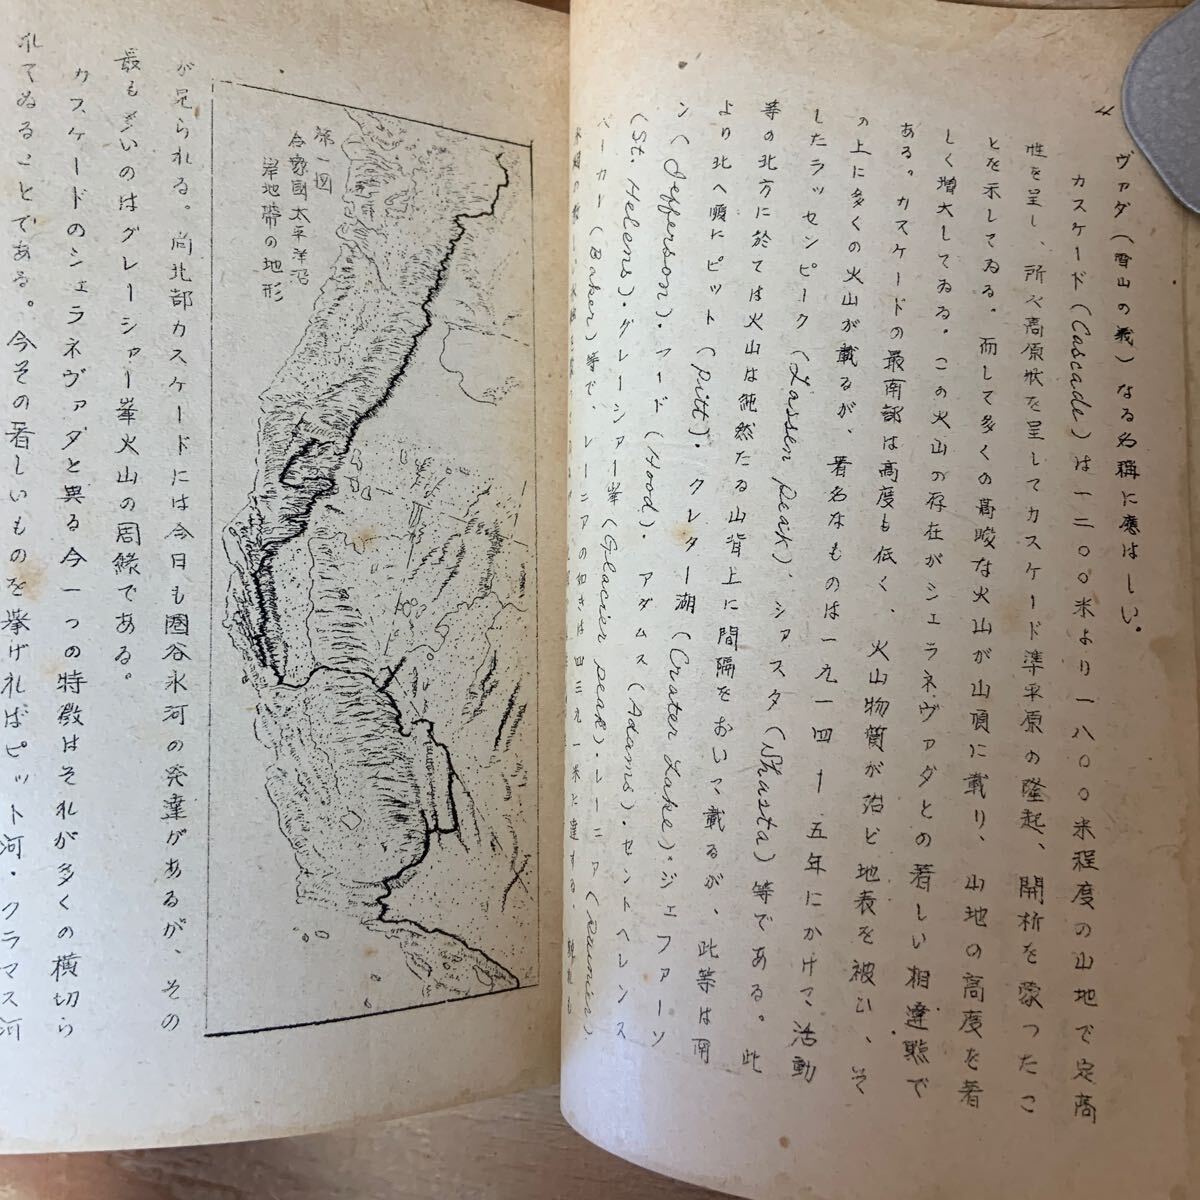 ヴァダ(雪山の義)なる名稱に應はしい。
カスケード(Cascade)は一二〇〇米より一八〇〇米程度の山地で定高
性を呈し、所々高原狀を呈してカスケード準平原の隆起、開析を蒙つたこ
とを示してゐる。而して多くの高峻な火山が山頂に載り、山地の高度を著
しく增大してゐる。この火山の存在がシェラネヴァダとの著しい相違點で
ある。カスケードの最南部は高度も低く、火山物質が殆ど地表を被ひ、そ
の上に多くの火山が載るが、著名なものは一九一四ー五年にかけて活動
したラッセンピーク(Lassen Peak)、シャスタ(Shasta)等である。此
等の北方に於ては火山は純然たる山背上に間隔をおいて載るが、此等は南
より北へ順にピット(Pitt)・クレター湖(Crater Lake)・ジェファーソ
ン(Jefferson)・フード(Hood)・アダムス(Adams)・セントヘレンス
(St. Helens)・グレーシァー峯(Glacier peak)・レーニア(Rainier)・
ベーカー(Baker)等で、レーニアの如きは四三九一米に達する。
第一図
合衆國太平洋沿
岸地帶の地形
が見られる。尚北部カスケードには今日も圏谷氷河の発達があるが、その
最も多いのはグレーシァー峯火山の周緣である。
カスケードのシェラネヴァダと異る今一つの特徵はそれが多くの横切ら
れてゐることである。今その著しいものを挙げればピット河・クラマス河